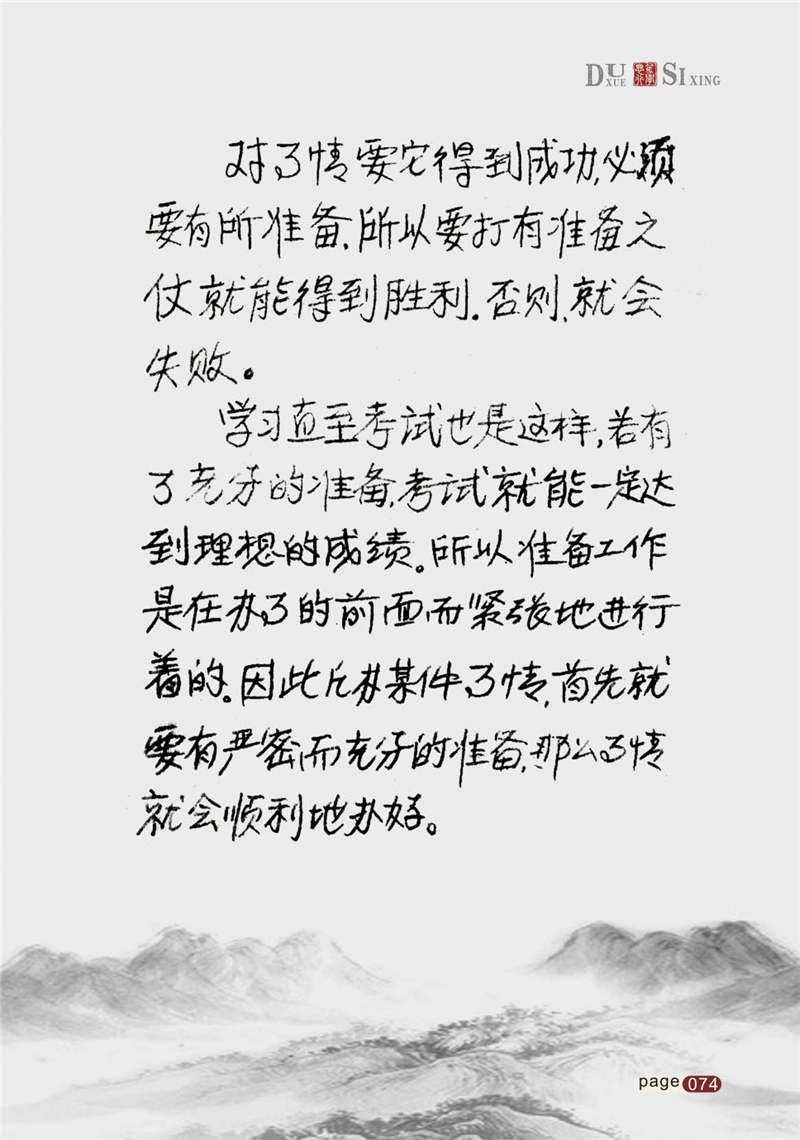 DU XUE SI XING
对了情要它得到成功,必须
要有所准备.所以要打有准备之
仗就能得到胜利.否则,就会
失败。
学习直至考试也是这样,若有
了充分的准备,考试就能一定达
到理想的成绩。所以准备工作
是在办了的前面而紧张地进行
着的。因此凡办某件了情,首先就
要有严密而充分的准备,那么了情
就会顺利地办好。
page 074